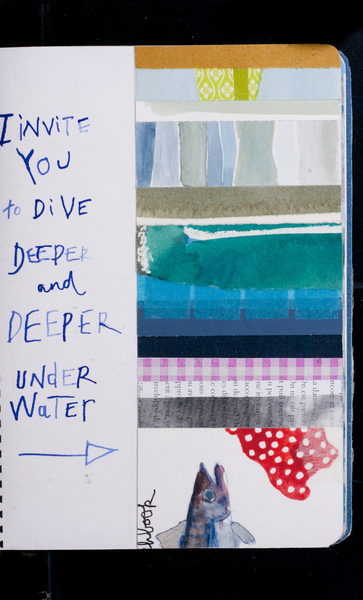 I iNViTE
YOU
to DiVE
DEEPER
and
DEEPER
UNDER
WaTER